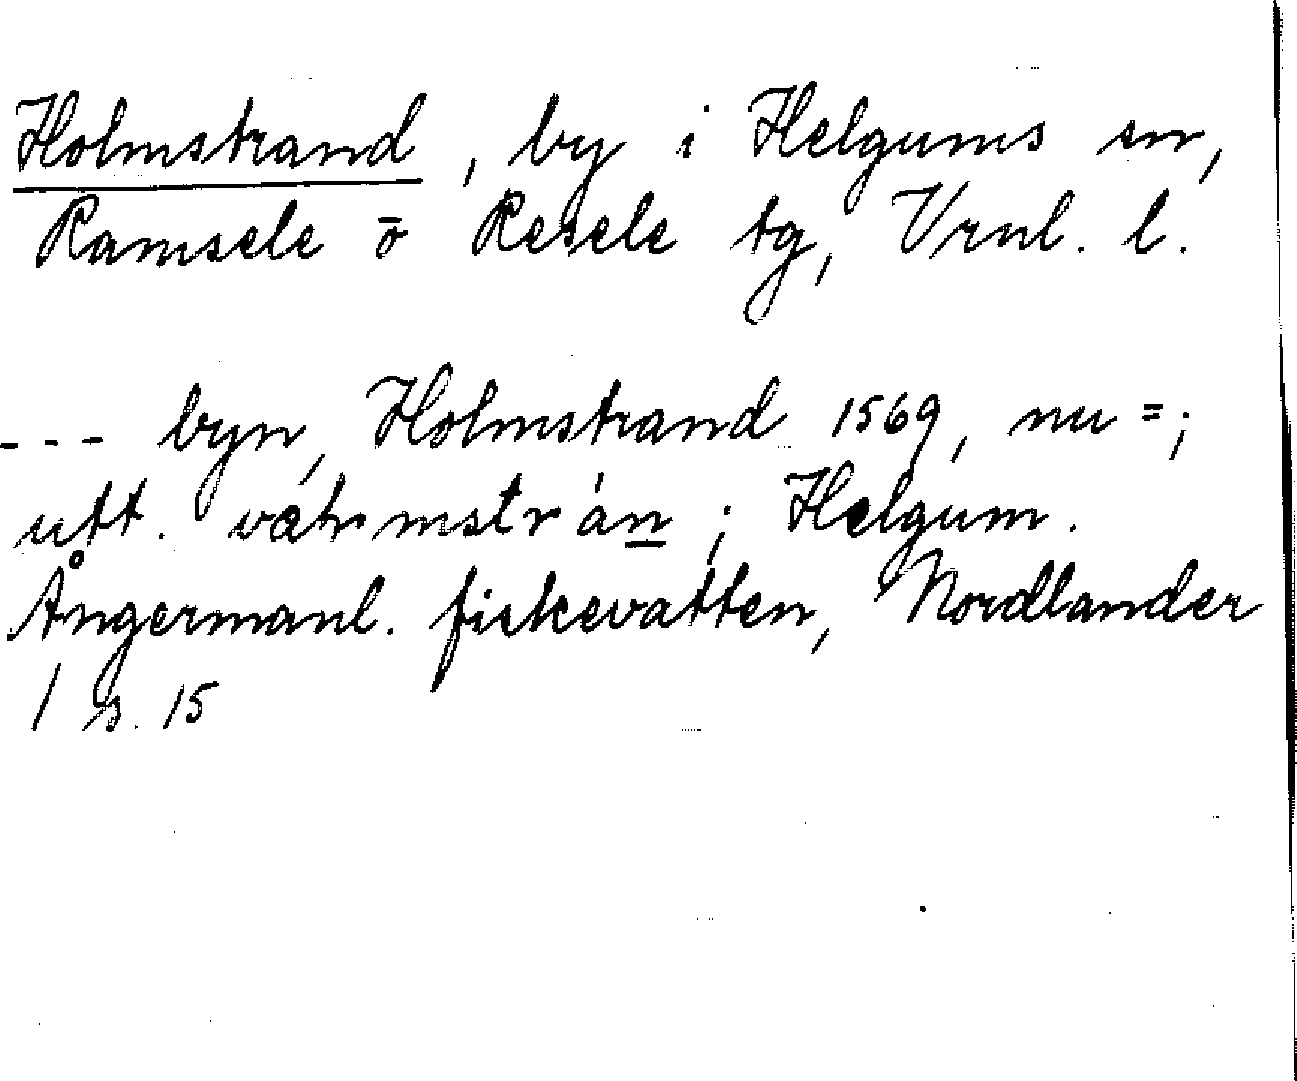 Holmstrand, by i Helgums sn,
Ramsele o Resele tg, Vrnl. l.
--- byn, Holmstrand 1569, nu =;
utt. ; Helgum.
Ångermanl. fiskevatten, Nordlander
1 s. 15